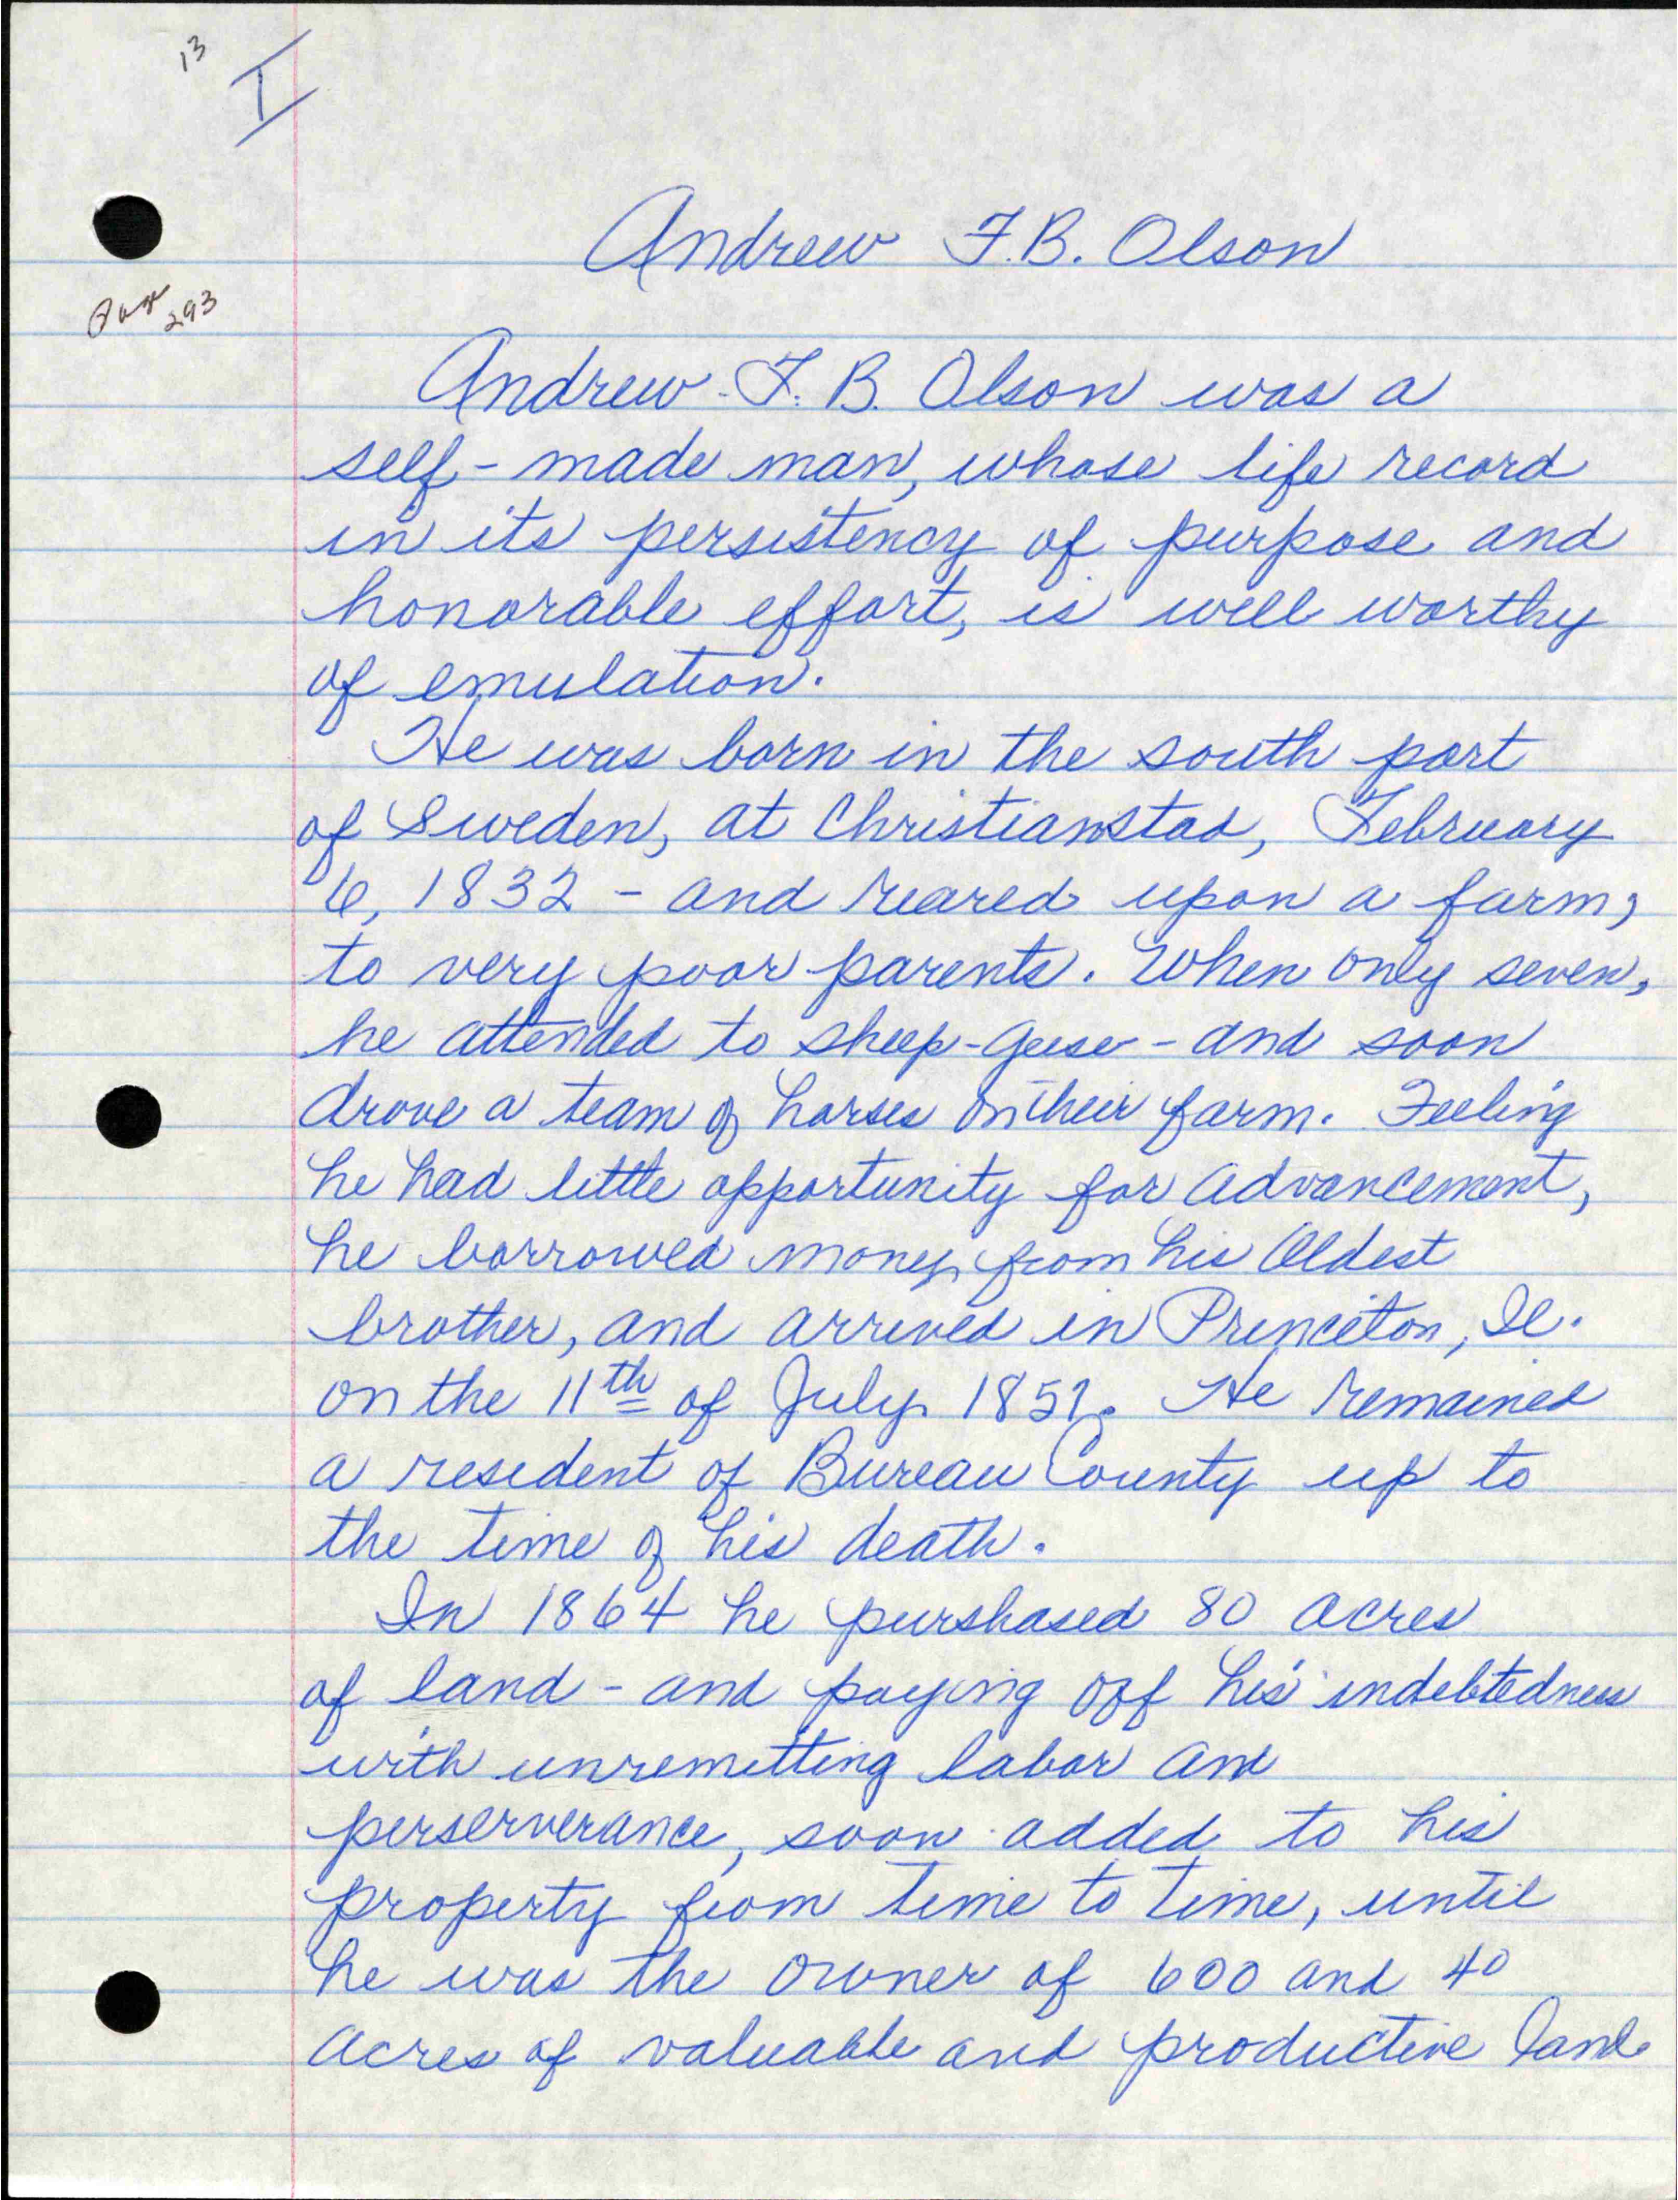 13
I
Andrew F.B. Olson
293
Andrew F. B. Olson was a
self-made man, whose life record
in its persistency of purpose and
honorable effort, is well worthy
of emulation.
He was born in the south part
of Sweden, at Christianstad, February
6, 1832 - and reared upon a farm,
to very poor parents. When only seven,
he attended to sheep-geese-and soon
drove a team of horses on their farm. Feeling
he had little opportunity for advancement,
he borrowed money from his oldest
brother, and arrived in Princeton, Il.
on the 11th of July 1851. He remained
a resident of Bureau County up to
the time of his death.
In 1864 he purshased 80 acres
of land - and paying off his indebtedness
with unremitting labor and
perserverance, soon added to his
property from time to time, until
he was the owner of 600 and 40
acres of valuable and productive land.